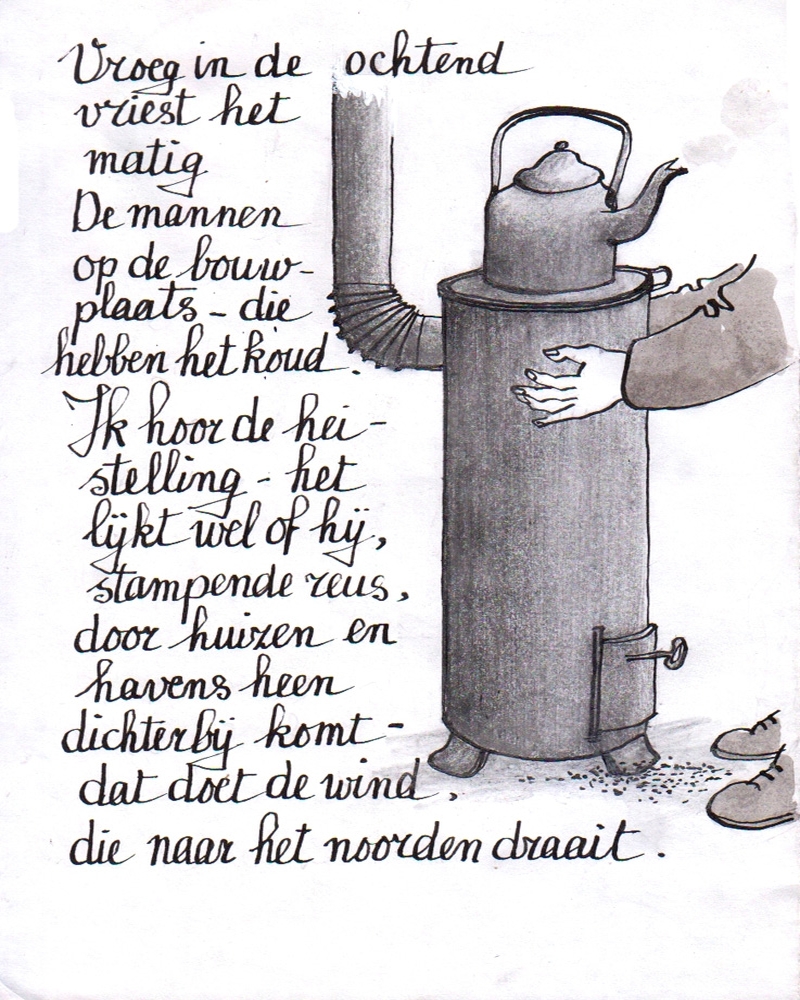 Vroeg in de ochtend
vriest het
matig
De mannen
op de bouw-
plaats - die
hebben het koud.
Ik hoor de hei-
stelling - het
lijkt wel of hij,
stampende reus,
door huizen en
havens heen
dichterbij komt -
dat doet de wind,
die naar het noorden draait.